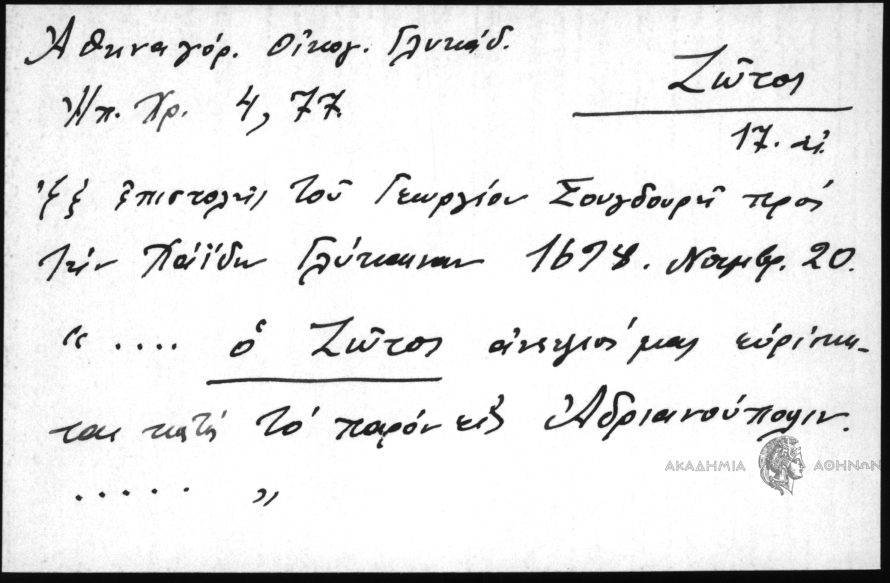 Ἀθηναγόρ. Οἰκογ. Γλυκάδ.
Ζῶτος
Ἠπ. Χρ. 4, 77.
17. αἰ.
Ἐξ ἐπιστολῆς τοῦ Γεωργίου Σουγδουρῆ πρός
τήν Χάϊδη Γλύκαιναν 1698. Νοεμβρ. 20.
« .... ὁ Ζῶτος ἀνεψιός μας εὑρίσκε-
ται κατά τό παρόν εἰς Ἀδριανούπολιν.
...... »
ΑΚΑΔΗΜΙΑ ΑΘΗΝΩΝ